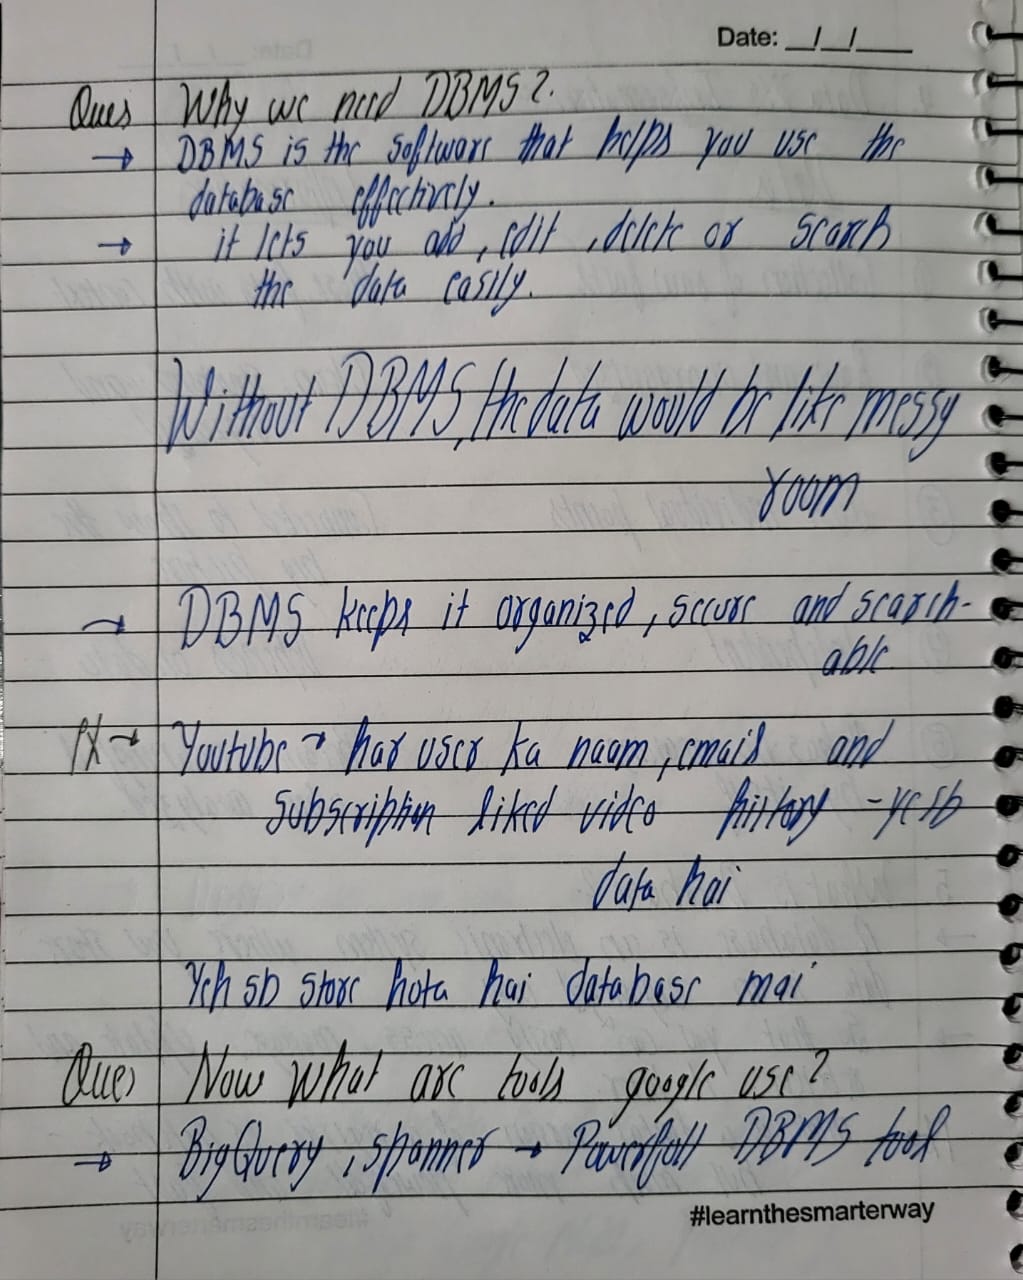 Date: __/__/____
Ques Why we need DBMS?.
→ DBMS is the software that helps you use the
database effectively.
→ it lets you add, edit, delete or search
the data easily.
Without DBMS, the data would be like messy
room
→ DBMS keeps it organized, secure and search-
able
→ Youtube → har user ka naam, email and
subscription liked video history - yeh sb
data hai
Yeh sb store hota hai database mai
Ques Now what are tools google use?
→ BigQuery, spanner → Powerfull DBMS tool
#learnthesmarterway